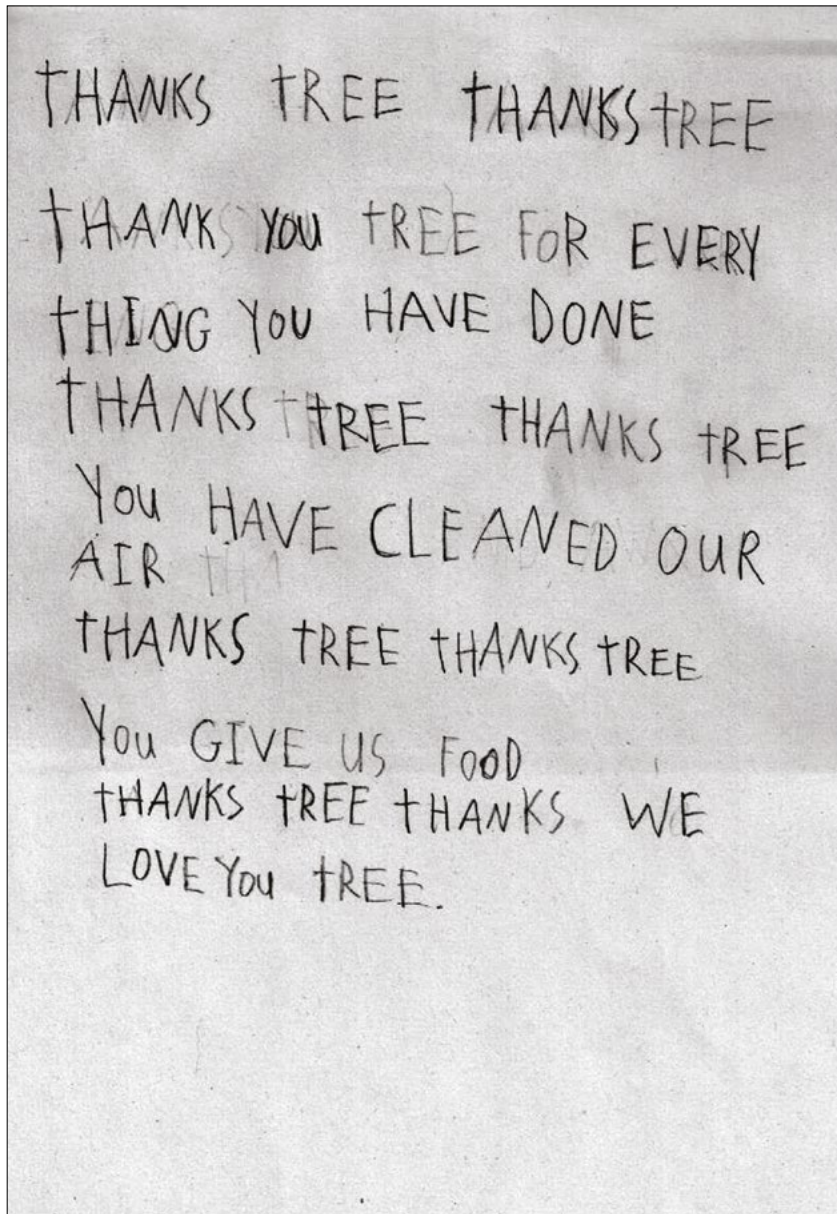 tHANKS tREE tHANKS tREE
tHANK YOU tREE FOR EVERY
tHING YOU HAVE DONE
tHANKS tREE tHANKS tREE
YOU HAVE CLEANED OUR
AIR
tHANKS tREE tHANKS tREE
YOU GIVE US FOOD
tHANKS tREE tHANKS WE
LOVE YOU tREE.